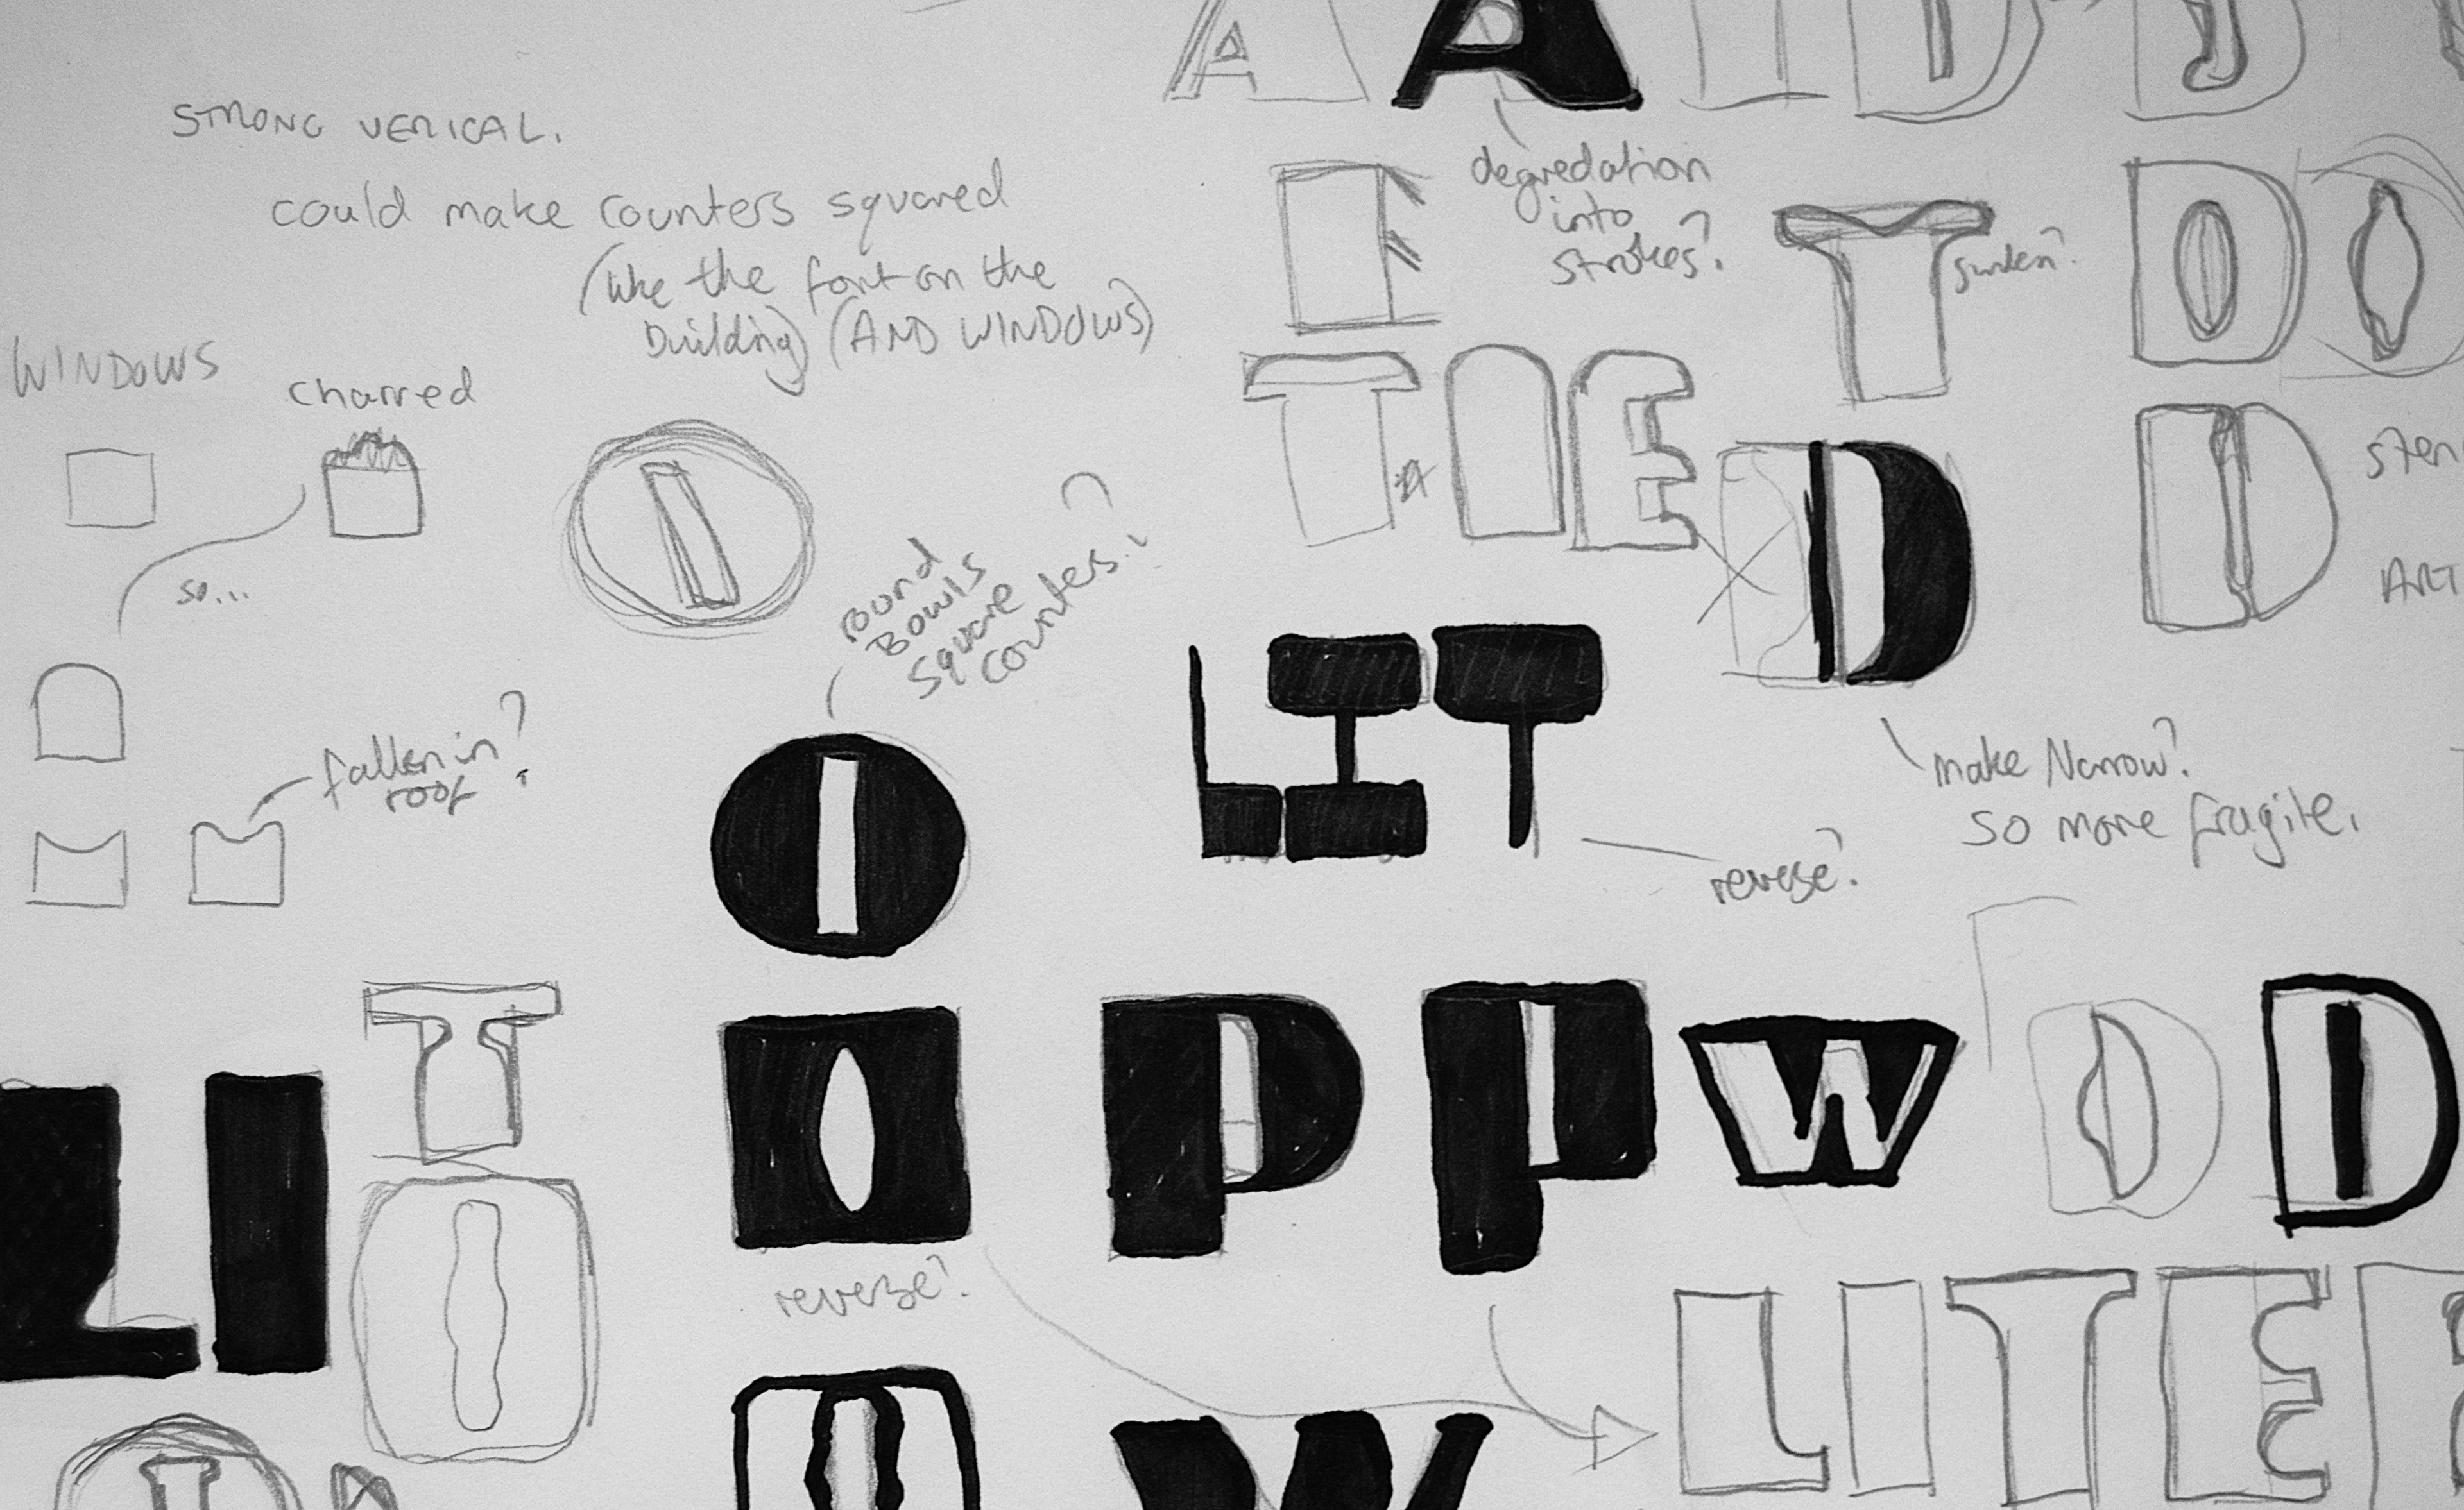 A A I D D
STRONG VERICAL.
could make counters squared
(like the font on the
building) (AND WINDOWS)
degredation
into
strokes?
E
T sunken?
D O
WINDOWS
charred
T I E
D
D
ART
so...
O
round
Bowls
square
counters..?
fallen in?
roof
LIT
make Narrow?
so more fragile.
reverse?
O
T
LI
O
O P P W D D
reverse?
LITE
O W